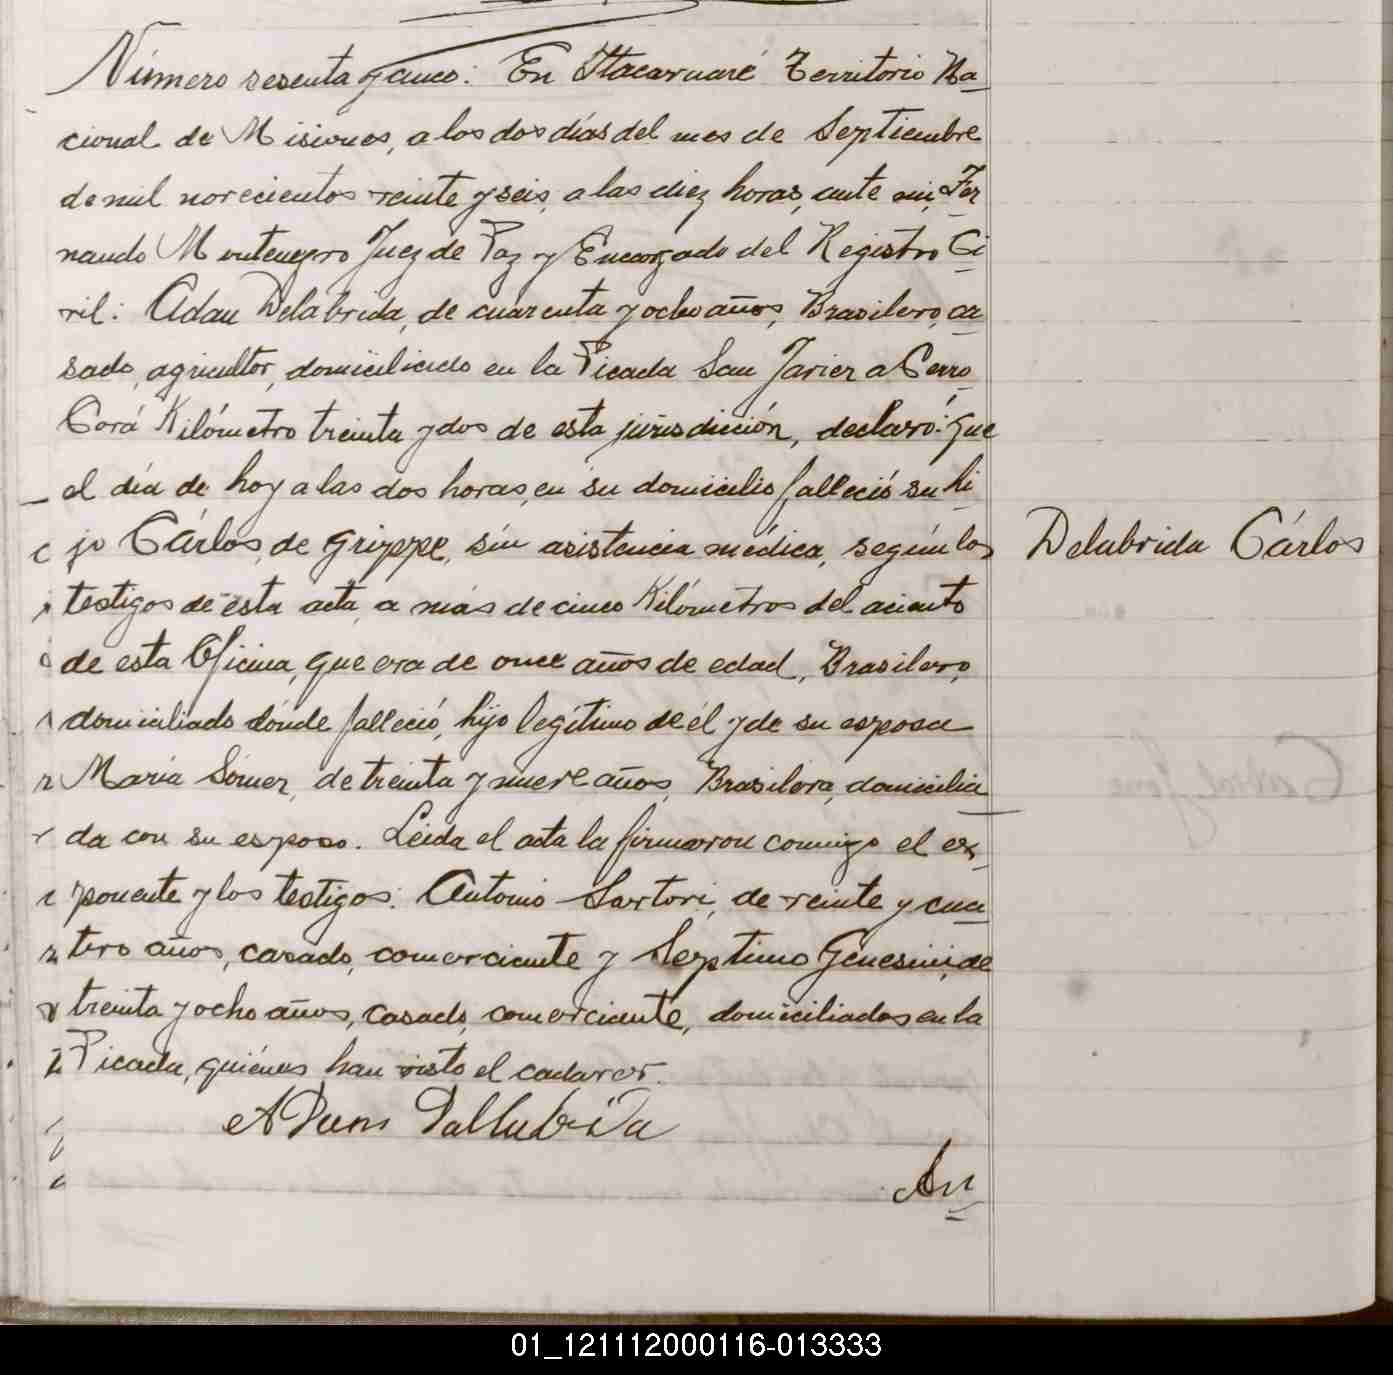 Número sesenta y cinco: En Itacaruaré Territorio Na-
cional de Misiones, a los dos días del mes de Septiembre
de mil novecientos veinte y seis, a las diez horas, ante mi, Fer-
nando Montenegro Juez de Paz y Encargado del Registro Ci-
vil: Adan Delabrida, de cuarenta y ocho años, Brasilero, ca-
sado, agricultor, domiciliado en la Picada San Javier a Cerro
Corá Kilómetro treinta y dos de esta jurisdicción, declaró: que
el día de hoy a las dos horas, en su domicilio falleció su hi-
jo Cárlos, de grippe, sin asistencia médica, según los
Delabrida Cárlos
testigos de esta acta, a más de cinco Kilómetros del aciento
de esta Oficina, que era de once años de edad, Brasilero,
domiciliado dónde falleció, hijo legítimo de él y de su esposa
María Sómer, de treinta y nueve años, Brasilera, domicilia-
da con su esposo. Leida el acta la firmaron conmigo el ex-
ponente y los testigos: Antonio Sartori, de veinte y cua-
tro años, casado, comerciante y Septimo Genesini, de
treinta y ocho años, casado, comerciante, domiciliados en la
Picada, quiénes han visto el cadaver.
ADam Dallabrida
An
01_121112000116-013333